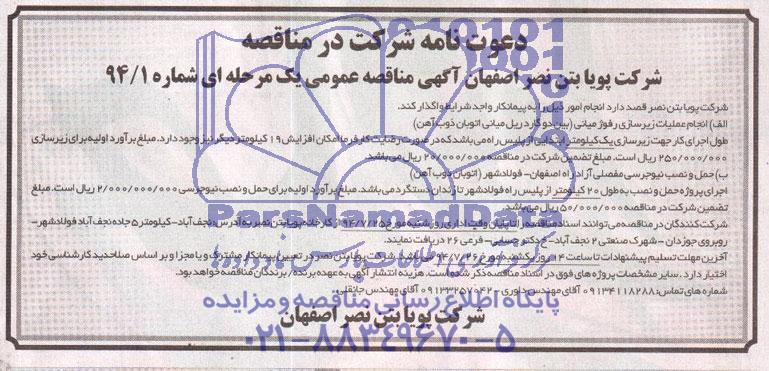 دعوت نامه شرکت در مناقصه
شرکت پویا بتن نصر اصفهان آگهی مناقصه عمومی یک مرحله ای شماره ۹۴/۱
شرکت پویا بتن نصر قصد دارد انجام امور ذیل را به پیمانکار واجد شرایط واگذار کند.
الف) انجام عملیات زیرسازی رفوژ میانی (بین دو گاردریل میانی اتوبان ذوب آهن)
طول اجرای کار جهت زیرسازی یک کیلومتر ابتدایی از پلیس راه می باشد که در صورت رضایت کارفرما امکان افزایش ۱۹ کیلومتر دیگر نیز وجود دارد. مبلغ برآورد اولیه برای زیرسازی
۲۵۰/۰۰۰/۰۰۰ ریال است. مبلغ تضمین شرکت در مناقصه ۲۰/۰۰۰/۰۰۰ ریال می باشد.
ب) حمل و نصب نیوجرسی مفصلی آزاد راه اصفهان - فولادشهر (اتوبان ذوب آهن)
اجرای پروژه حمل و نصب به طول ۲۰ کیلومتر از پلیس راه فولادشهر تا زندان دستگرد می باشد. مبلغ برآورد اولیه برای حمل و نصب نیوجرسی ۲/۰۰۰/۰۰۰/۰۰۰ ریال است. مبلغ
تضمین شرکت در مناقصه ۵۰/۰۰۰/۰۰۰ ریال می باشد.
شرکت کنندگان در مناقصه می توانند اسناد مناقصه را تا پایان وقت اداری روز شنبه مورخ ۹۴/۷/۲۵ از کارخانه پویا بتن نصر به آدرس: نجف آباد- کیلومتر ۵ جاده نجف آباد فولادشهر-
روبروی جوزدان - شهرک صنعتی ۲ نجف آباد- خ دکتر حسابی - فرعی ۲۶ دریافت نمایند.
آخرین مهلت تسلیم پیشنهادات تا ساعت ۱۴ روز یکشنبه مورخ ۹۴/۷/۲۶ می باشد. شرکت پویا بتن نصر در تعیین پیمانکار مشترک و یا مجزا و بر اساس صلاحدید کارشناسی خود
اختیار دارد. سایر مشخصات پروژه های فوق در اسناد مناقصه ذکر شده است. هزینه انتشار آگهی به عهده برنده/ برندگان مناقصه خواهد بود.
شماره های تماس: ۰۹۱۳۴۱۱۸۲۸۸ آقای مهندس داوری - ۰۹۱۳۳۲۵۷۰۴۲ آقای مهندس جانقلی
شرکت پویا بتن نصر اصفهان
ParsNamadData
پایگاه اطلاع رسانی مناقصه و مزایده
۰۲۱-۸۸۳۴۹۶۷۰-۵